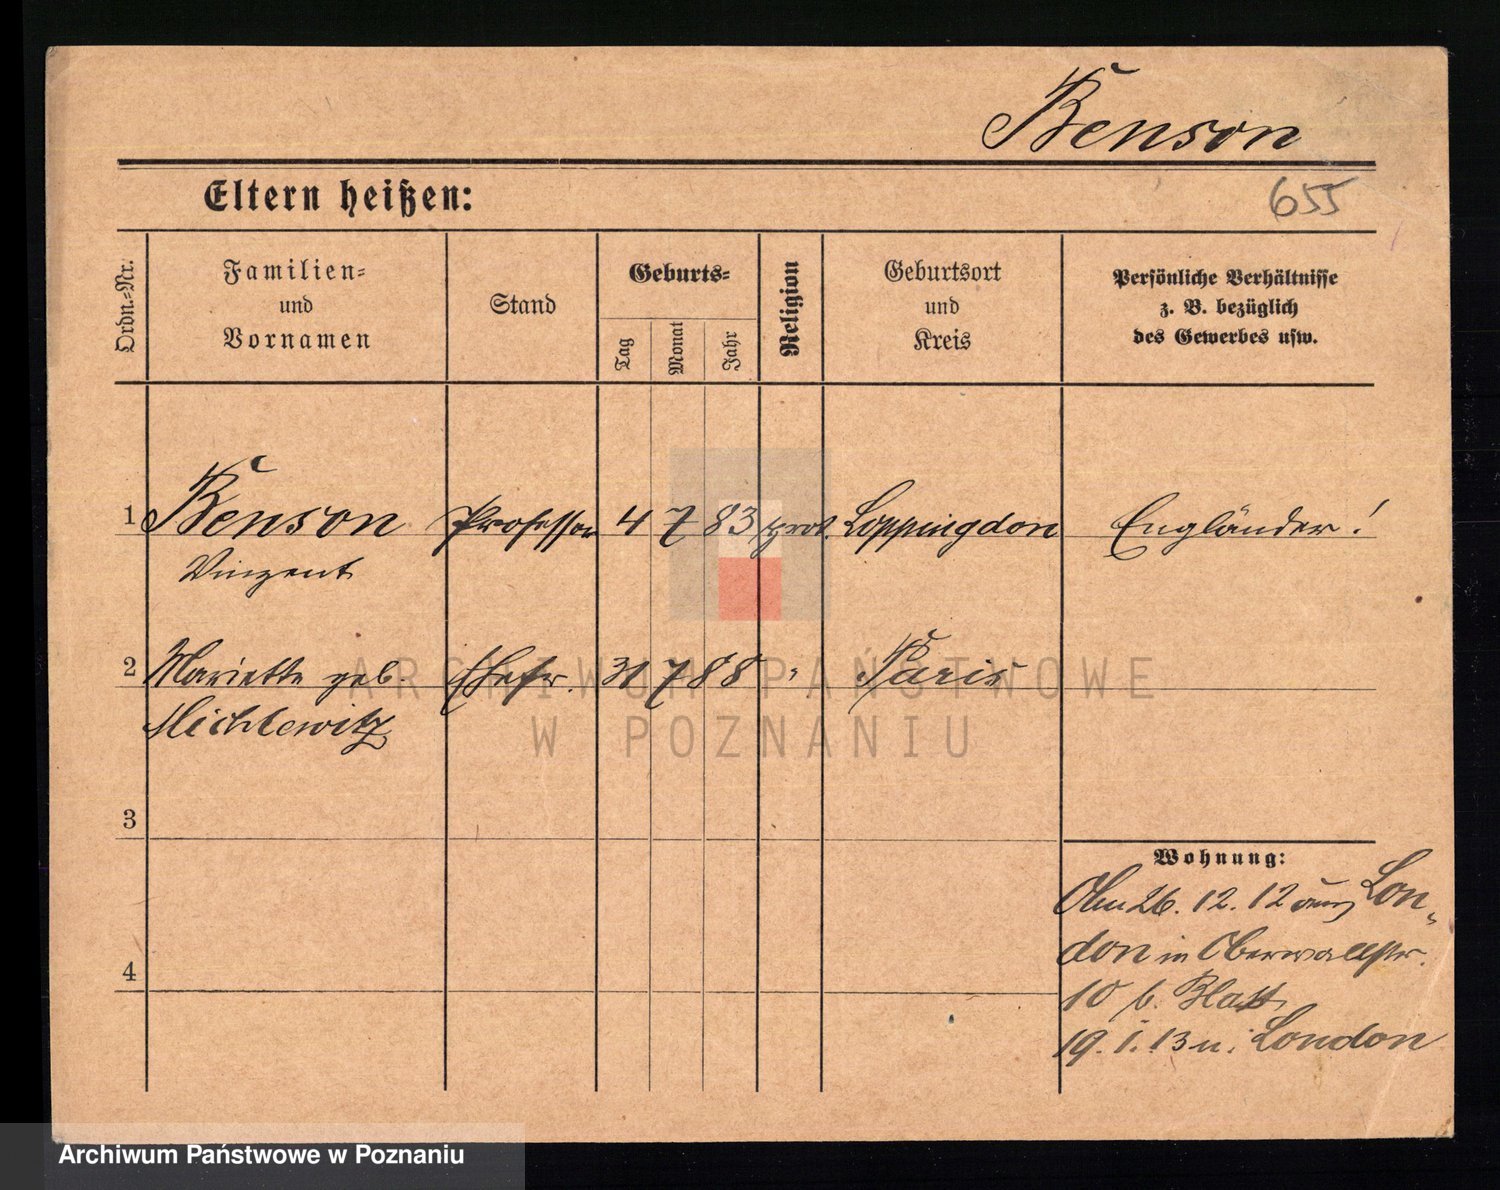 Benson
Eltern heißen:
655
Ordn.=Nr.
Familien=
und
Vornamen
Stand
Geburts=
Tag
Monat
Jahr
Religion
Geburtsort
und
Kreis
Persönliche Verhältnisse
z. B. bezüglich
des Gewerbes usw.
1 Benson Professor 4 7 83 prot. Loppingdon Engländer!
Vinzent
2 Mariette geb. Ehefr. 31 7 88 " Paris
Michlewitz
3
4
Wohnung:
26. 12. 12 aus Lon-
don in Oberwallstr.
10 b. Blatt
19. 1. 13 n. London
ARCHIWUM PAŃSTWOWE
W POZNANIU
Archiwum Państwowe w Poznaniu